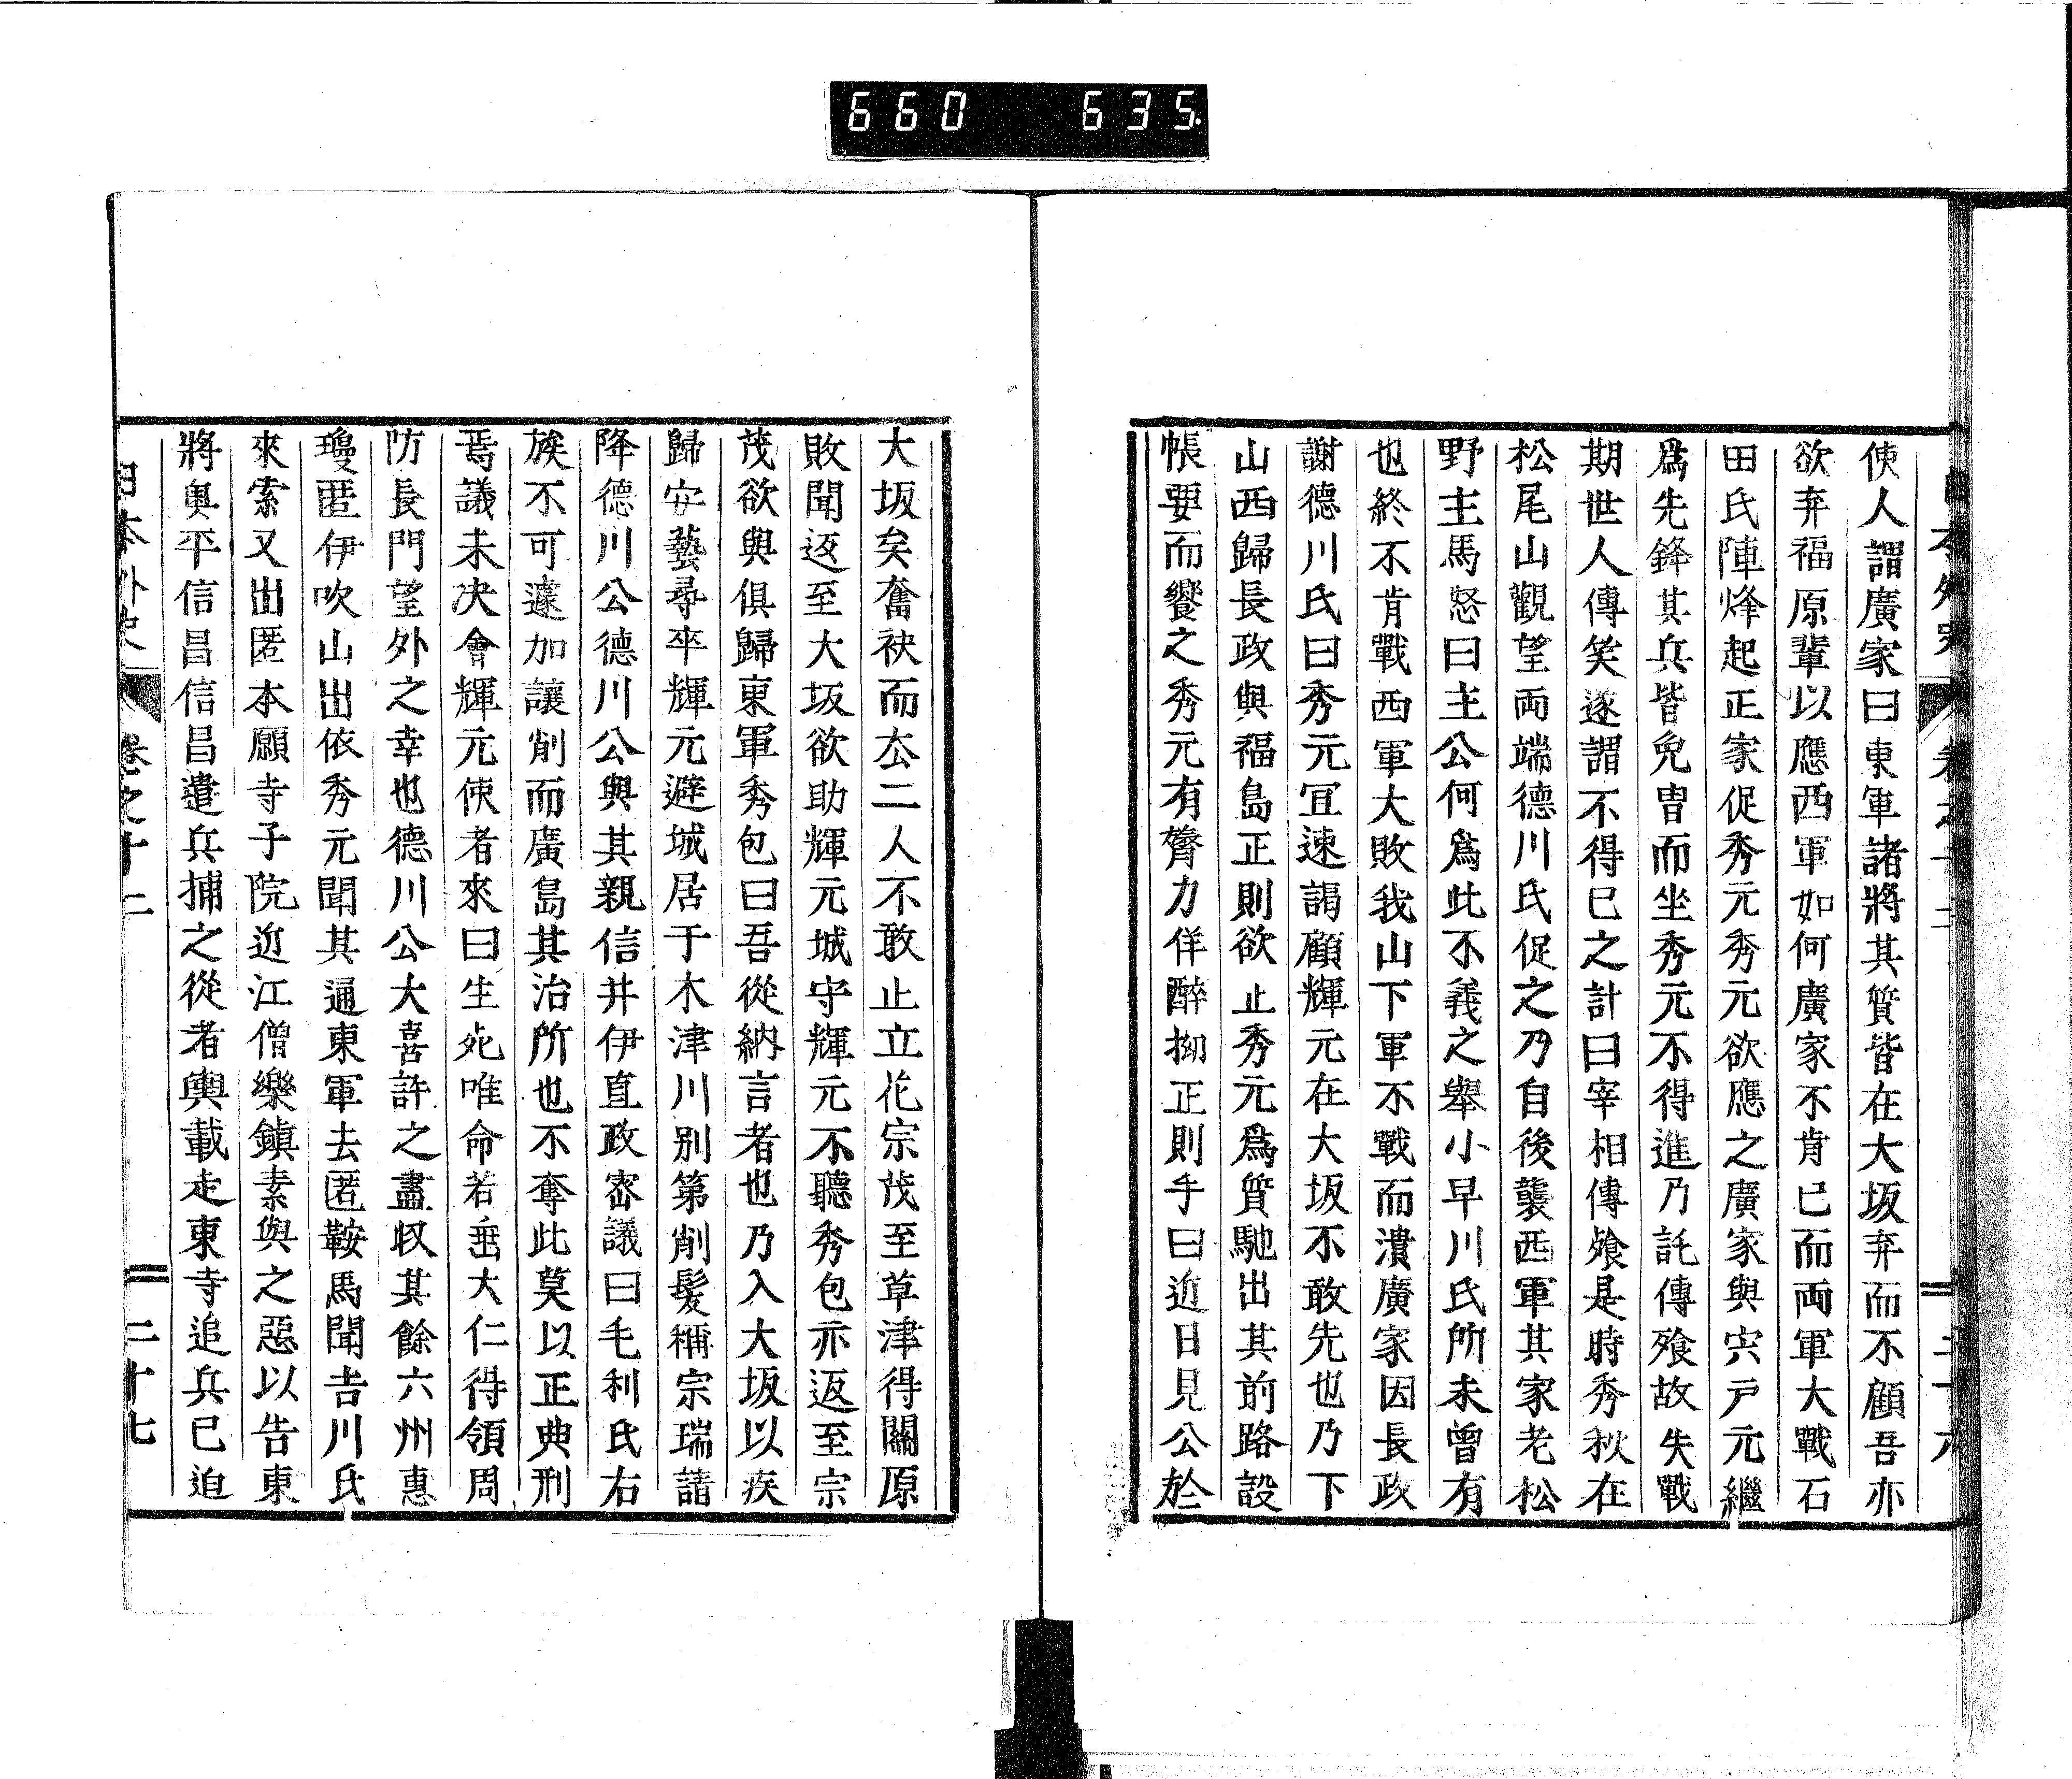 660 635.
使人謂廣家曰東軍諸將其質皆在大坂弃而不顧吾亦
欲弃福原輩以應西軍如何廣家不肯已而両軍大戰石
田氏陣烽起正家促秀元秀元欲應之廣家與宍戸元繼
爲先鋒其兵皆免冑而坐秀元不得進乃託傳飱故失戰
期世人傳笑遂謂不得已之計曰宰相傳飱是時秀秋在
松尾山觀望両端德川氏促之乃自後襲西軍其家老松
野主馬怒曰主公何爲此不義之舉小早川氏所未曾有
也終不肯戰西軍大敗我山下軍不戰而潰廣家因長政
謝德川氏曰秀元冝速謁顧輝元在大坂不敢先也乃下
山西歸長政與福島正則欲止秀元爲質馳出其前路設
帳要而饗之秀元有膂力佯醉拗正則手曰近日見公於
大坂矣奮袂而厺二人不敢止立花宗茂至草津得關原
敗聞返至大坂欲助輝元城守輝元不聽秀包亦返至宗
茂欲與俱歸東軍秀包曰吾從納言者也乃入大坂以疾
歸安藝尋卒輝元避城居于木津川別第削髮稱宗瑞請
降德川公德川公與其親信井伊直政密議曰毛利氏右
族不可遽加讓削而廣島其治所也不奪此莫以正典刑
焉議未决會輝元使者來曰生死唯命若垂大仁得領周
防長門望外之幸也德川公大喜許之盡収其餘六州惠
瓊匿伊吹山出依秀元聞其通東軍去匿鞍馬聞吉川氏
來索又出匿本願寺子院近江僧樂鎮素與之惡以告東
將奥平信昌信昌遣兵捕之從者輿載走東寺追兵已迫
日本外史 卷之十二 二十七